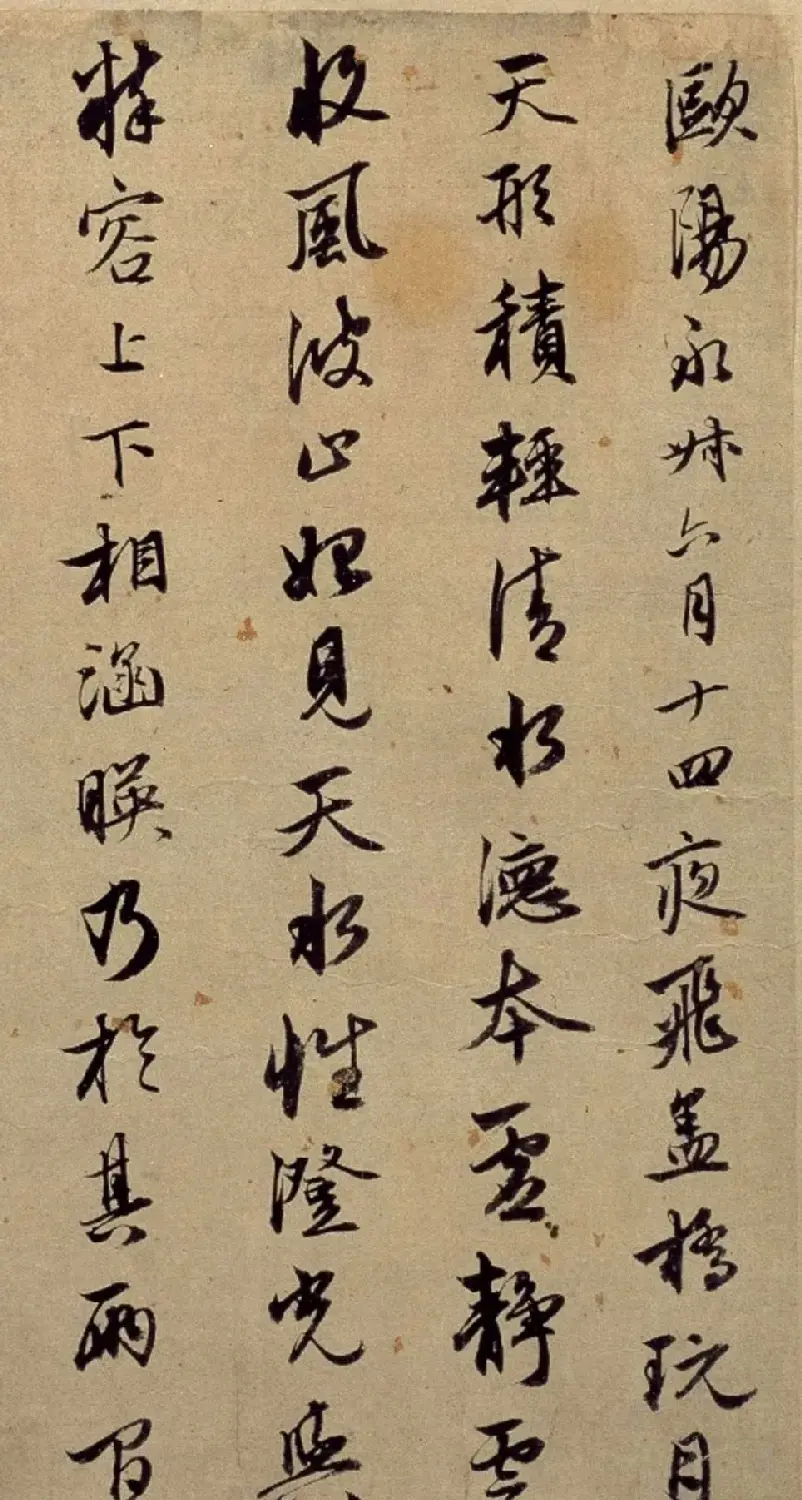 歐陽永叔六月十四夜飛蓋橋玩月
天形積輕清水德本虛靜雲
收風波止始見天水性澄光與
粹容上下相涵暎乃於其兩間